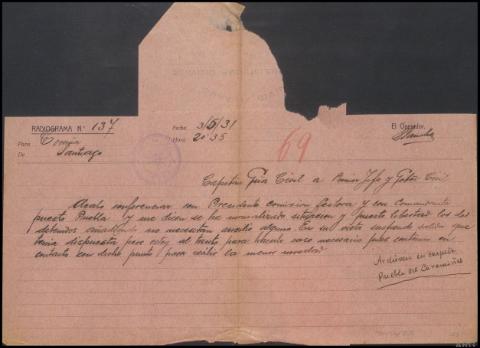 RADIOGRAMA N.º 137 Fecha 3/6/31 El Operador,
Para Coruña Hora 20'35
De Santiago
69
Capitan Gua Civil a Primer Jefe y Gobor Civil
Acabo conferenciar con Presidente comision Gestora y con Comandante
puesto Puebla y me dicen se ha normalizado situacion y puesto libertad los
detenidos no necesitan auxilio alguno En su vista suspendo salida que
tenia dispuesta pero estoy al tanto para hacerlo caso necesario pues continuo en
contacto con dicho punto para evitar la menor novedad
Archívese en carpeta
Puebla del Caramiñal